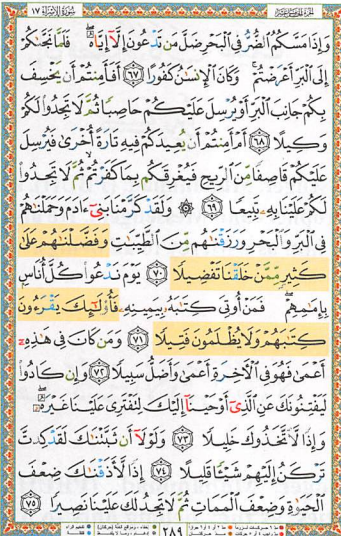 الجزء الخامس عشر سورة الإسراء ١٧
وَإِذَا مَسَّكُمُ ٱلضُّرُّ فِى ٱلْبَحْرِ ضَلَّ مَن تَدْعُونَ إِلَّآ إِيَّاهُ ۖ فَلَمَّا نَجَّىٰكُمْ
إِلَى ٱلْبَرِّ أَعْرَضْتُمْ ۚ وَكَانَ ٱلْإِنسَٰنُ كَفُورًا ٦٧ أَفَأَمِنتُمْ أَن يَخْسِفَ
بِكُمْ جَانِبَ ٱلْبَرِّ أَوْ يُرْسِلَ عَلَيْكُمْ حَاصِبًا ثُمَّ لَا تَجِدُوا۟ لَكُمْ
وَكِيلًا ٦٨ أَمْ أَمِنتُمْ أَن يُعِيدَكُمْ فِيهِ تَارَةً أُخْرَىٰ فَيُرْسِلَ
عَلَيْكُمْ قَاصِفًا مِّنَ ٱلرِّيحِ فَيُغْرِقَكُم بِمَا كَفَرْتُمْ ۙ ثُمَّ لَا تَجِدُوا۟
لَكُمْ عَلَيْنَا بِهِۦ تَبِيعًا ٦٩ ۞ وَلَقَدْ كَرَّمْنَا بَنِىٓ ءَادَمَ وَحَمَلْنَٰهُمْ
فِى ٱلْبَرِّ وَٱلْبَحْرِ وَرَزَقْنَٰهُم مِّنَ ٱلطَّيِّبَٰتِ وَفَضَّلْنَٰهُمْ عَلَىٰ
كَثِيرٍ مِّمَّنْ خَلَقْنَا تَفْضِيلًا ٧٠ يَوْمَ نَدْعُوا۟ كُلَّ أُنَاسٍۭ
بِإِمَٰمِهِمْ ۖ فَمَنْ أُوتِىَ كِتَٰبَهُۥ بِيَمِينِهِۦ فَأُو۟لَٰٓئِكَ يَقْرَءُونَ
كِتَٰبَهُمْ وَلَا يُظْلَمُونَ فَتِيلًا ٧١ وَمَن كَانَ فِى هَٰذِهِۦٓ
أَعْمَىٰ فَهُوَ فِى ٱلْءَاخِرَةِ أَعْمَىٰ وَأَضَلُّ سَبِيلًا ٧٢ وَإِن كَادُوا۟
لَيَفْتِنُونَكَ عَنِ ٱلَّذِىٓ أَوْحَيْنَآ إِلَيْكَ لِتَفْتَرِىَ عَلَيْنَا غَيْرَهُۥ ۖ
وَإِذًا لَّٱتَّخَذُوكَ خَلِيلًا ٧٣ وَلَوْلَآ أَن ثَبَّتْنَٰكَ لَقَدْ كِدتَّ
تَرْكَنُ إِلَيْهِمْ شَيْـًٔا قَلِيلًا ٧٤ إِذًا لَّأَذَقْنَٰكَ ضِعْفَ
ٱلْحَيَوٰةِ وَضِعْفَ ٱلْمَمَاتِ ثُمَّ لَا تَجِدُ لَكَ عَلَيْنَا نَصِيرًا ٧٥
٢٨٩